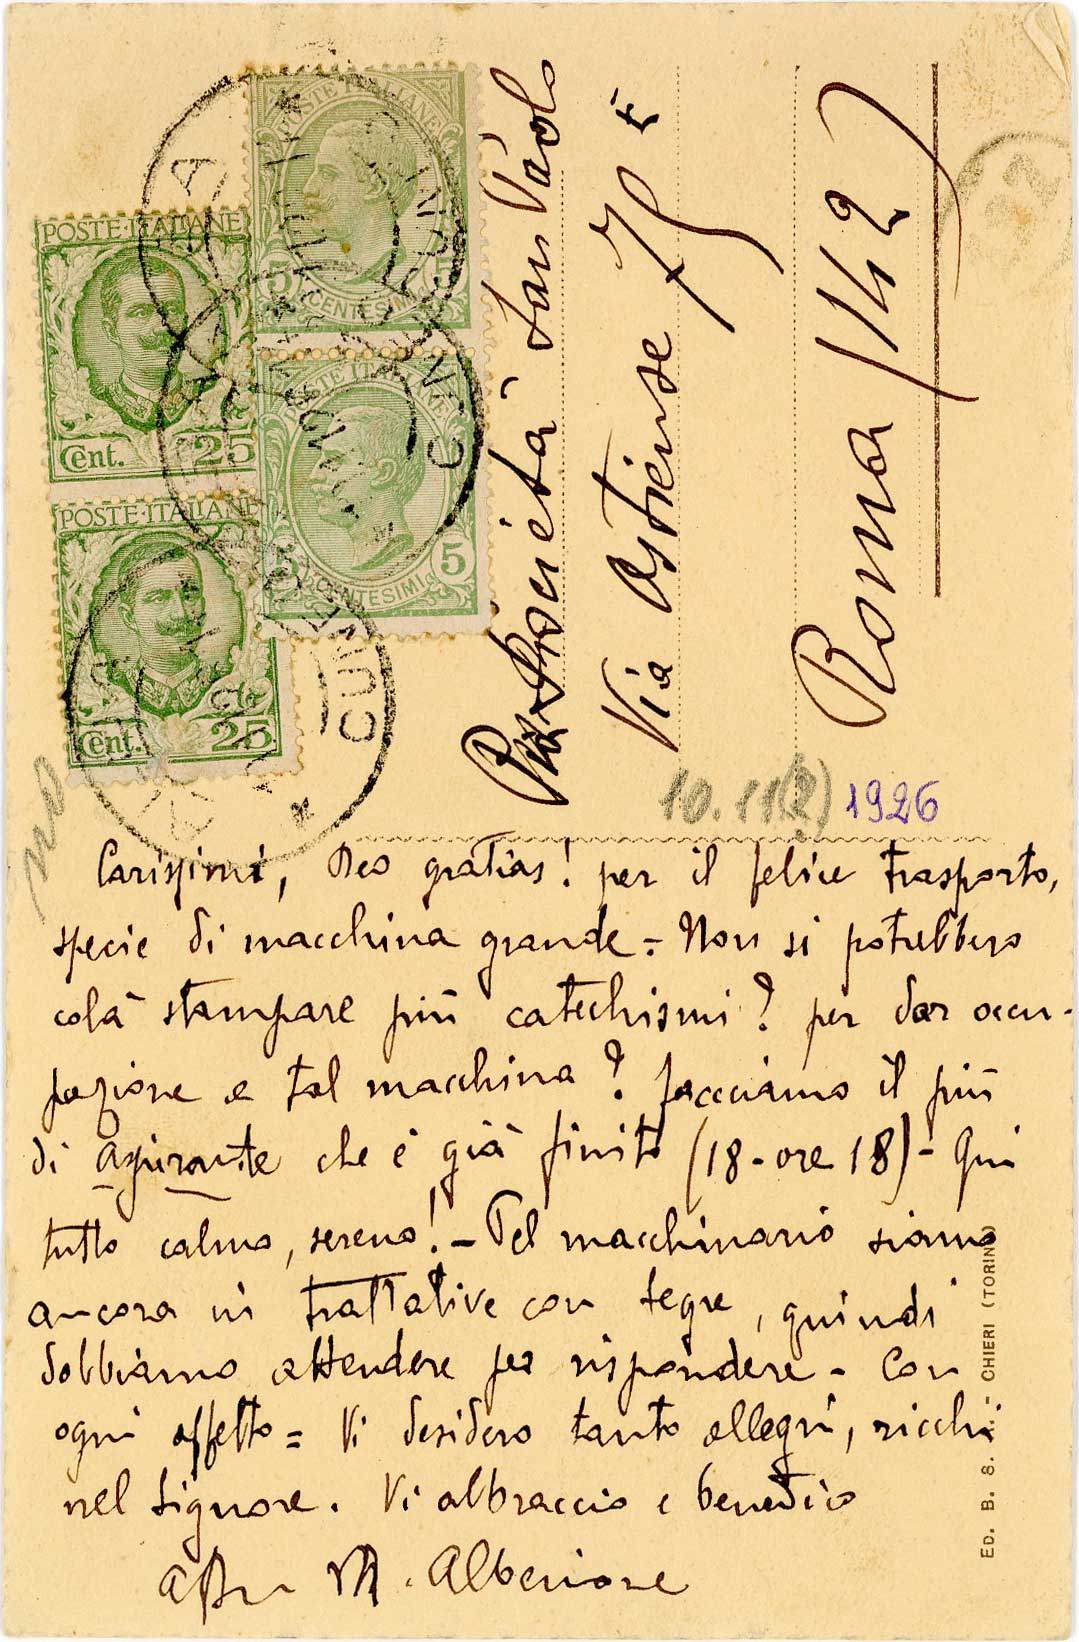 POSTE ITALIANE
5 5
CENTESIMI
POSTE·ITALIANE
Cent. 25
POSTE ITALIANE
5 5
CENTESIMI
POSTE·ITALIANE
Cent. 25
CUNEO
Pia Società San Paolo
Via Ostiense 75 E
Roma 142
10.11(2) 1926
Carissimi, Deo gratias! per il felice trasporto,
specie di macchina grande = Non si potrebbero
colà stampare più catechismi? per dar occu-
pazione a tal macchina? facciamo il più
di aspirante che è già finito (18 - ore 18) - Qui
tutto calmo, sereno! - Pel macchinario siamo
ancora in trattative con Segre, quindi
dobbiamo attendere per rispondere - Con
ogni affetto = Vi desidero tanto allegri, ricchi
nel Signore. Vi abbraccio e benedico
M. Alberione
ED. B. S. - CHIERI (TORINO)